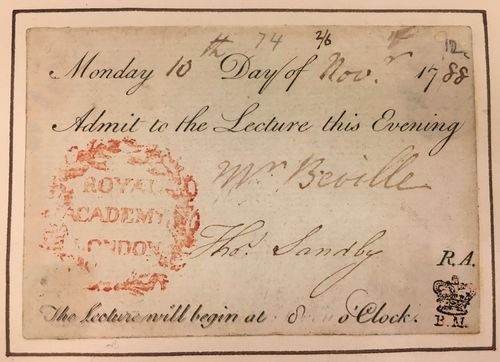 74 2/6
Monday 10th Day of Novr. 1788
Admit to the Lecture this Evening
Mr. Beville
ROYAL
ACADEMY
LONDON
Thos. Sandby
R.A.
The Lecture will begin at 8 o'Clock.
B.M.